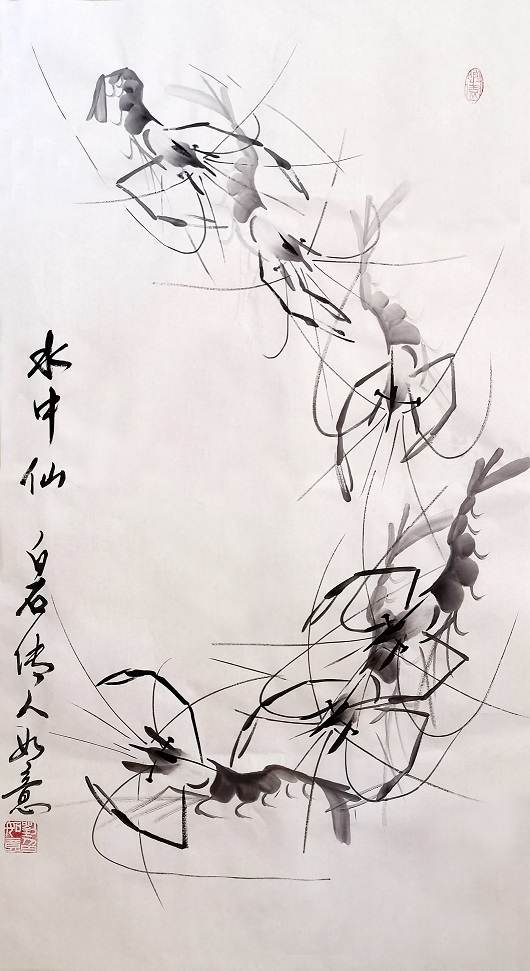 水中仙
白石传人如意